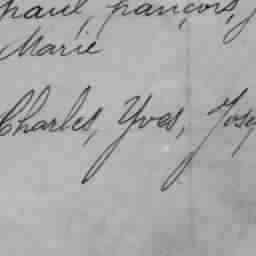 paul, françois, J
Marie
Charles, Yves, Jos